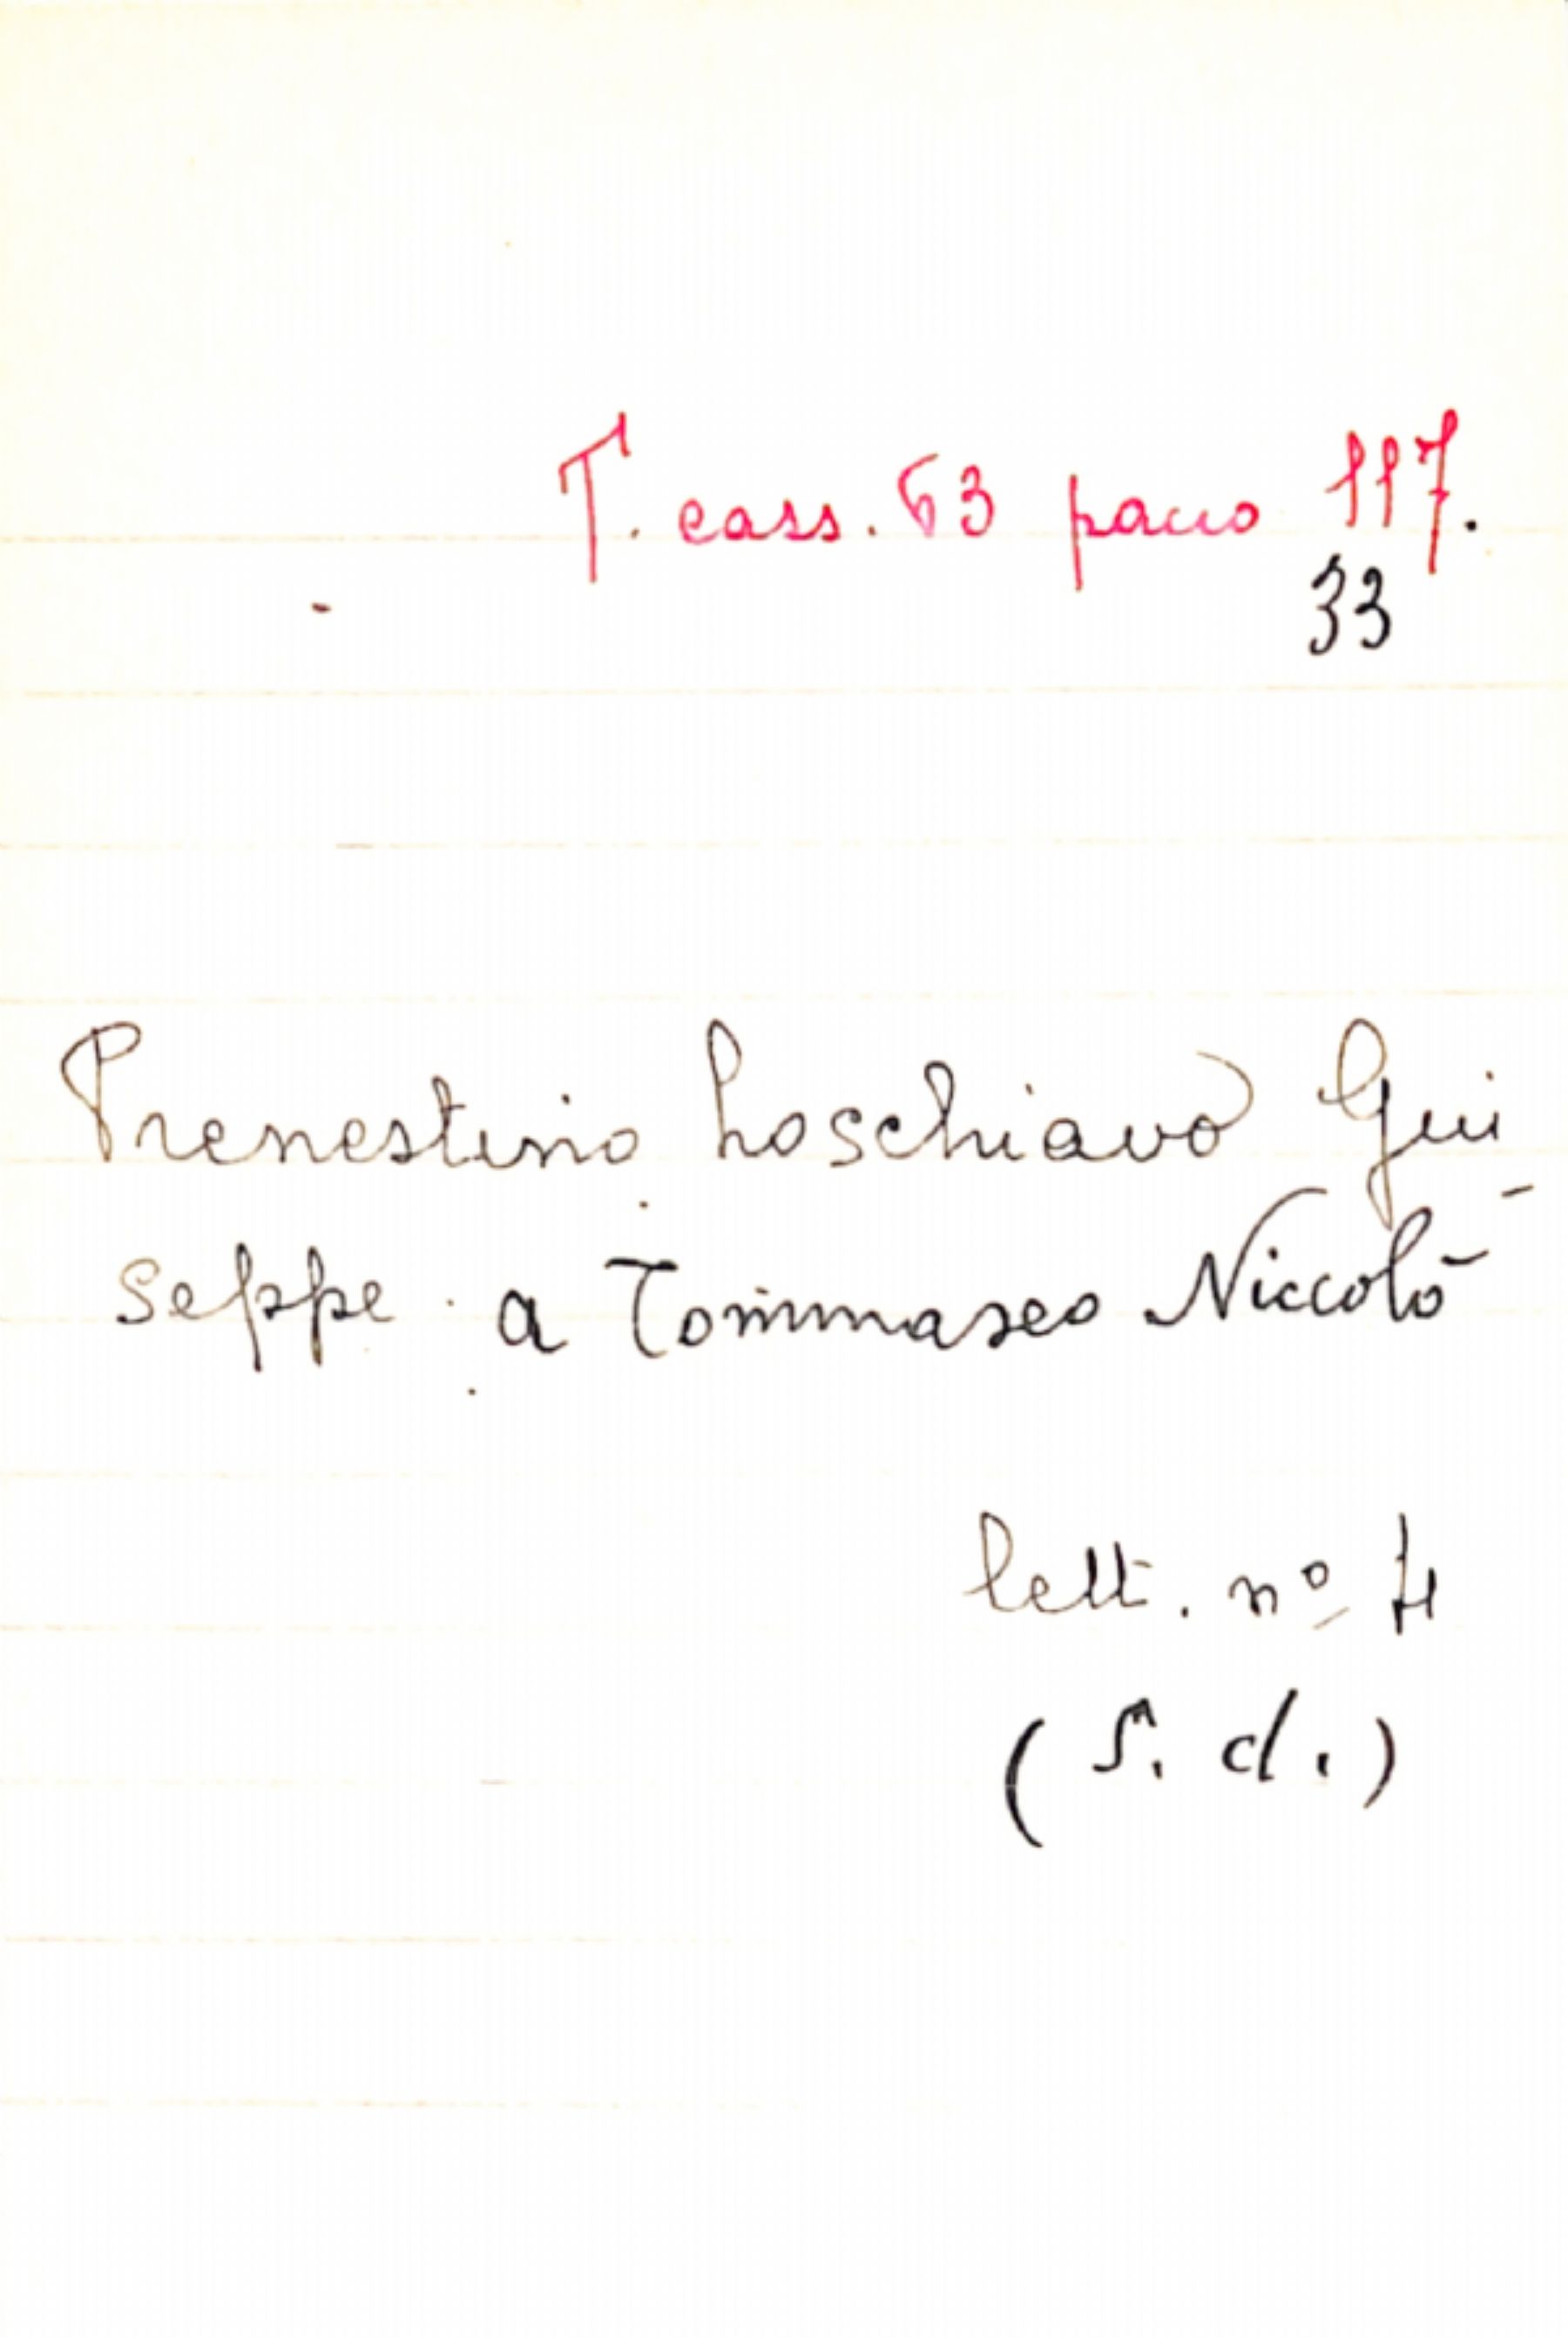 T. cass. 63 pacco 117.
33
Prenestino Loschiavo Giu
seppe a Tommaseo Niccolò
lett. nº 4
(s. d.)